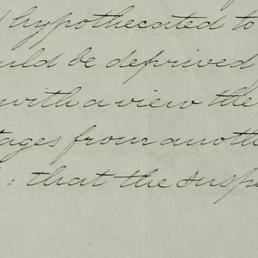 hypothecated to
uld be deprived
with a view the
tages from anoth
: that the susp